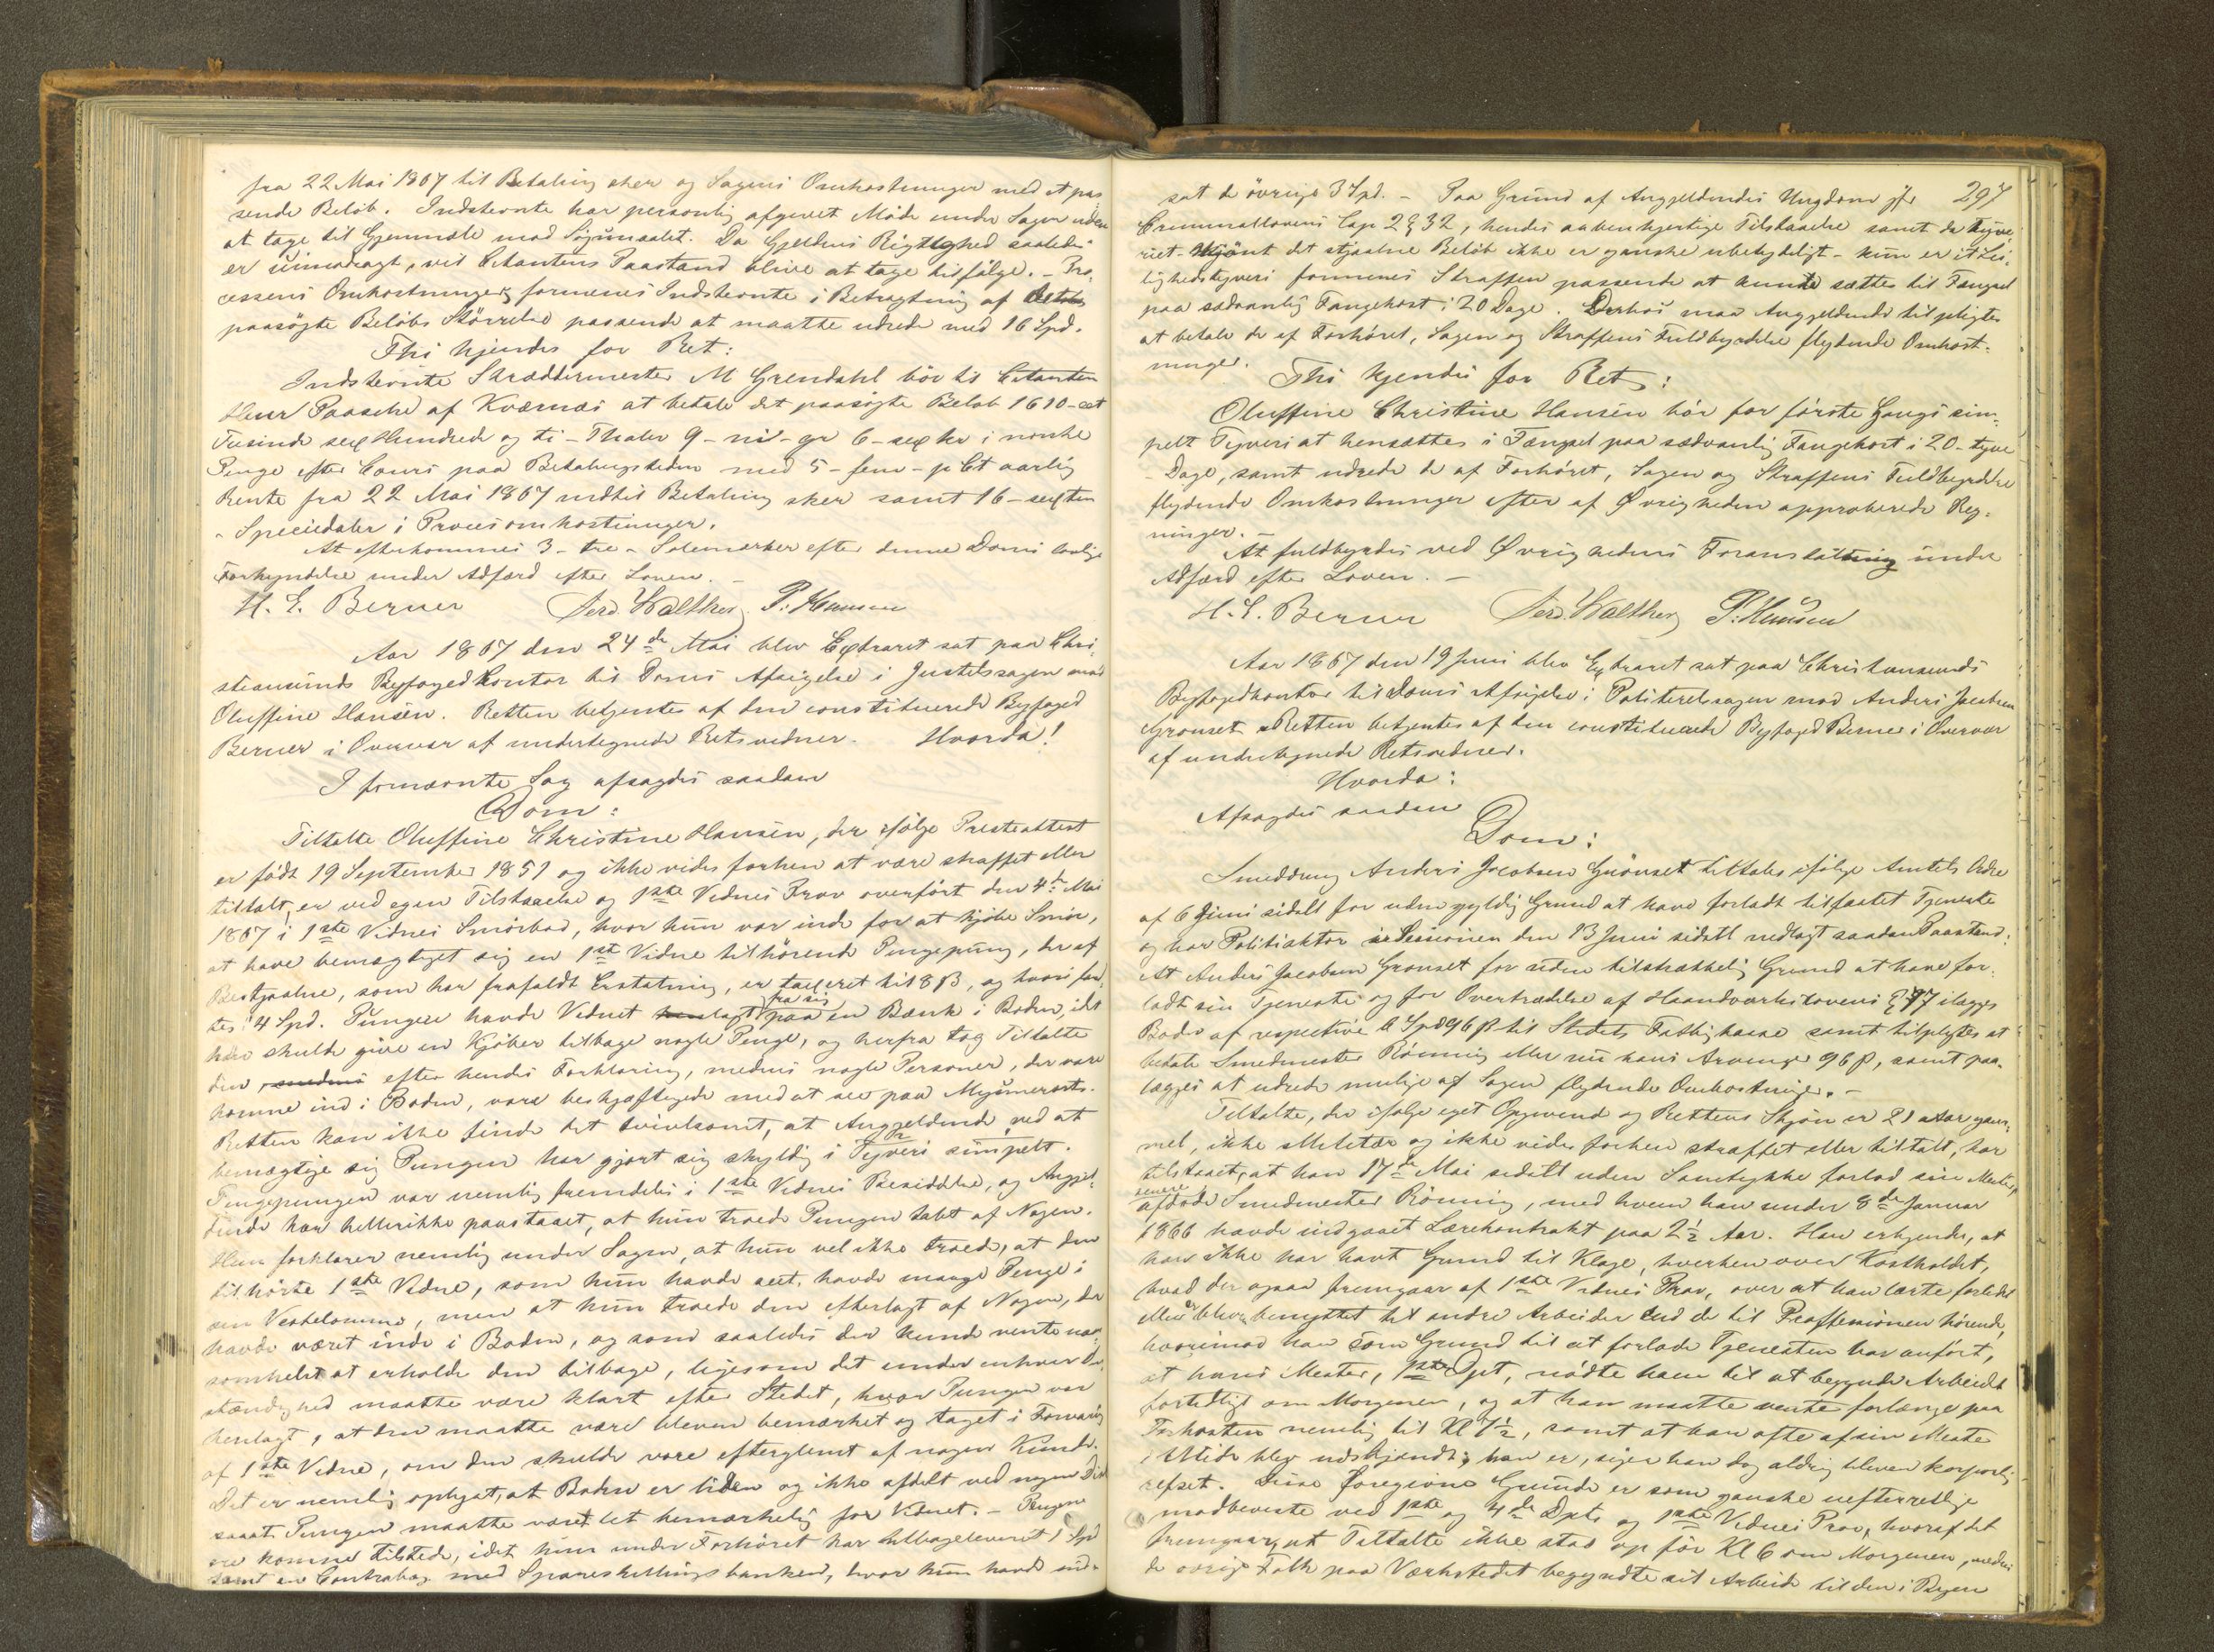 fra 22 Mai 1867 til Betaling skeer og Sagens Omkostninger med et pas-
sende Beløb. Indstevnte har personlig afgivet Møde under Sagen uden
at tage til Gjenmæle mod Søgsmaalet. Da Gjeldens Rigtighed saaledes
er uimodsagt, vil Citantens Paastand blive at tage tilfølge. – Pro-
cessens Omkostninger formenes Indstevnte i Betragtning af det
paasøgte Beløbs Størrelse passende at maatte udrede med 16 Spd.
Thi kjendes for Ret:
Indstevnte Skræddermester M Grendahl bør til Citanten
Paasche af Kværnæs at betale det paasøgte Beløb 1610 – et
Tusinde sex Hundrede og ti – Thaler 9 – ni – gr 6 – sex – i norske
Penge efter Cours paa Betalingstiden med 5 – fem – p Ct aarlig
Rente fra 22 Mai 1867 indtil Betaling skeer samt 16 – sexten
– Speciedaler i Procesomkostninger.
At efterkommes 3 – tre – Solemærker efter denne Doms lovlige
Forkyndelse under Adfærd efter Loven. –
H. E. Berner Ferd. Walther P. Hansen
Aar 1867 den 24de Mai blev Extraret sat paa Chri-
stiansunds Byfogedkontor til Doms Afsigelse i Justitssagen mod
Oluffine Hansen. Retten betjentes af den constituerede Byfoged
Berner i Overvær af undertegnede Retsvidner. Hvorda!
I fornævnte Sag afsagdes saadan
Dom:
Tiltalte Oluffine Christine Hansen, der ifølge Presteattest
er født 19 September 1851 og ikke vides forhen at være straffet eller
tiltalt, er ved egen Tilstaaelse og 1ste Vidnes Prov overført den 4de Mai
1867 i 1ste Vidnes Smørbod, hvor hun var inde for at kjøbe Smør,
at have bemægtiget sig en 1ste Vidne tilhørende Pengepung, der af
Bestjaalne, som har frafaldt Erstatning, er taxeret til 8 β, og hvori fand-
tes 4 Spd. Pungen havde Vidnet lagt fra sig paa en Bænk i Boden, idet
han skulde give en Kjøber tilbage nogle Penge, og herfra tog Tiltalte
den efter hendes Forklaring, medens nogle Personer, der vare
komne ind i Boden, vare beskjæftigede med at see paa
Retten kan ikke finde det tvivlsomt, at Angjeldende ved at
bemægtige sig Pungen har gjort sig skyldig i Tyveri simpelt.
Pengepungen var nemlig fremdeles i 1ste Vidnes Besiddelse, og Angjel-
dende har hellerikke paastaaet, at hun troede Pungen tabt af Nogen.
Hun forklarer nemlig under Sagen, at hun vel ikke troede, at den
tilhørte 1ste Vidne, som hun havde seet havde mange Penge i
sin Vestelomme, men at hun troede den efterlagt af Nogen, der
havde været inde i Boden, og som saaledes der kunde vente naar-
somhelst at erholde den tilbage, ligesom det under enhver Om-
stændighed maatte være klart efter Stedet, hvor Pungen var
henlagt, at den maatte være bleven bemærket og taget i Forvaring
af 1ste Vidne, om den skulde være efterglemt af nogen Kunde.
Det er nemlig oplyst, at Boden er liden og ikke afdelt ved nogen Disk
saaat Pungen maatte været let bemærkelig for Vidnet. – Pengene
ere komne tilstede, idet hun under Forhøret har tilbageleveret 1 Spd
samt en Contrabog med Spareskillingsbanken, hvor hun havde ind-
297
sat de øvrige 3 Spd. – Paa Grund af Angjeldendes Ungdom jfr
Criminallovens Cap 2 § 32, hendes aabenhjertige Tilstaaelse samt da Tyve-
riet – skjønt det stjaalne Beløb ikke er ganske ubetydeligt – kun er et Lei-
lighedstyveri formenes Straffen passende at kunde sættes til Fængsel
paa sædvanlig Fangekost i 20 Dage. Derhos maa Angjeldende tilpligtes
at betale de af Forhøret, Sagen og Straffens Fuldbyrdelse flydende Omkost-
ninger.
Thi kjendes for Ret:
Oluffine Christine Hansen bør for første Gangs sim-
pelt Tyveri at hensættes i Fængsel paa sædvanlig Fangekost i 20 – tyve
– Dage, samt udrede de af Forhøret, Sagen og Straffens Fuldbyrdelse
flydende Omkostninger efter af Øvrigheden approberede Reg-
ninger. –
At fuldbyrdes ved Øvrighedens Foranstaltning under
Adfærd efter Loven. –
H. E. Berner Ferd. Walther P. Hansen
Aar 1867 den 19 Juni blev Extraret sat paa Christiansunds
Byfogedkontor til Doms Afsigelse i Politiretssagen mod Anders Jacobsen
Grønset. Retten betjentes af den constituerede Byfoged Berner i Overvær
af undertegnede Retsvidner.
Hvorda:
Afsagdes saadan
Dom:
Smeddreng Anders Jacobsen Grønset tiltales ifølge Amtets Ordre
af 6 Juni sidstl for uden gyldig Grund at have forladt tilfæstet Tjeneste
og har Politiaktor i Sessionen den 13 Juni sidstl nedlagt saadan Paastand:
At Anders Jacobsen Grønset for uden tilstrækkelig Grund at have for-
ladt sin Tjeneste og for Overtrædelse af Haandværkslovens § 97 ilægges
Bøder af respective 6 Spd 96 β til Stedets Fattigkasse samt tilpligtes at
betale Smedmester Rønning eller nu hans Arvinger 96 β, samt paa-
lægges at udrede mulige af Sagen flydende Omkostninger. –
Tiltalte, der ifølge eget Opgivend og Rettens Skjøn er 21 Aar gam-
mel, ikke Militær og ikke vides forhen straffet eller tiltalt, har
tilstaaet, at han 17de Mai sidstl uden Samtykke forlod sin Mester,
senere afdøde Smedmester Rønning, med hvem han under 8de Januar
1866 havde indgaaet Lærekontrakt paa 2½ Aar. Han erkjender, at
han ikke har havt Grund til Klage, hverken over Kostholdet,
hvad der ogsaa fremgaar af 1ste Vidnes Prov, over at han lærte forlidet
eller blev benyttet til andre Arbeider end de til Professionen hørende,
hvorimod han som Grund til at forlade Tjenesten har anført,
at hans Mester, 1ste Dpt, nødte ham til at begynde Arbeidet
fortidligt om Morgenen, og at han maatte vente forlænge paa
Frokosten nemlig til Kl 7½, samt at han ofte af sin Mester
blev udskjændt; han er, siger han dog aldrig bleven korporlig
refset. Disse foregivne Grunde er som ganske uefterrettelige
modbeviste ved 1ste og 4de Dpts og 1ste Vidnes Prov, hvoraf det
fremgaar, at Tiltalte ikke stod op før Kl 6 om Morgenen, medens
de øvrige Folk paa Værkstedet begyndte sit Arbeide til den i Byen